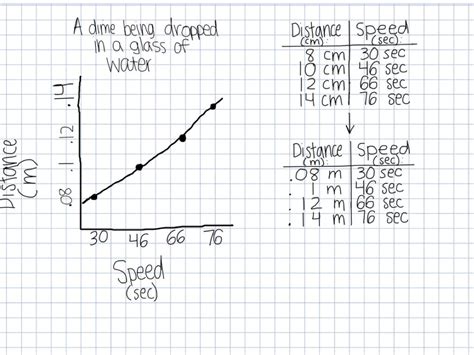 A dime being dropped
in a glass of
water
Distance
(m)
.14
.12
.1
.08
30 46 66 76
Speed
(sec)
Distance Speed
(cm) (sec)
8 cm 30 sec
10 cm 46 sec
12 cm 66 sec
14 cm 76 sec
Distance Speed
(m) (sec)
.08 m 30 sec
.1 m 46 sec
.12 m 66 sec
.14 m 76 sec